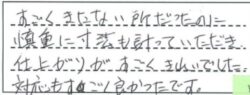 すごくきたない所だったのに
慎重に寸法も計っていただき、
仕上がりがすごくきれいでした。
対応もすごく良かったです。